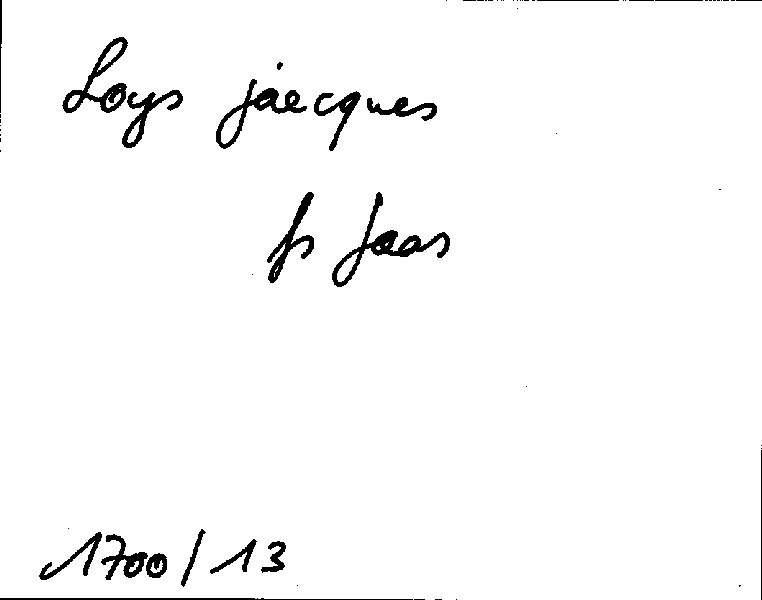 Loys jaecques
fs Jaas
1700/13